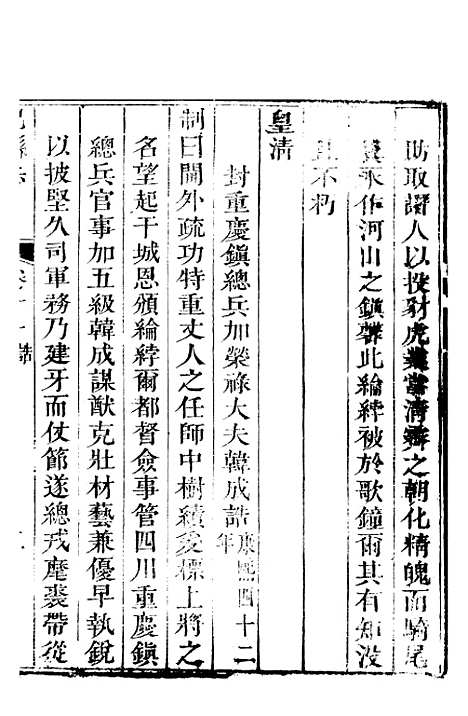 取譖人以投豺虎當淸霽之朝化精魄而騎尾
永作河山之鎮此綸綍被於歌鐘爾其有知沒
且不朽
皇淸
封重慶鎮總兵加榮祿大夫韓成誥康熙四十二年
制曰閫外疏功特重丈人之任師中樹績爰標上將之
名望起干城恩頒綸綍爾都督僉事管四川重慶鎮
總兵官事加五級韓成謀猷克壯材藝兼優早執銳
以披堅久司軍務乃建牙而仗節遂總戎麾裘帶從